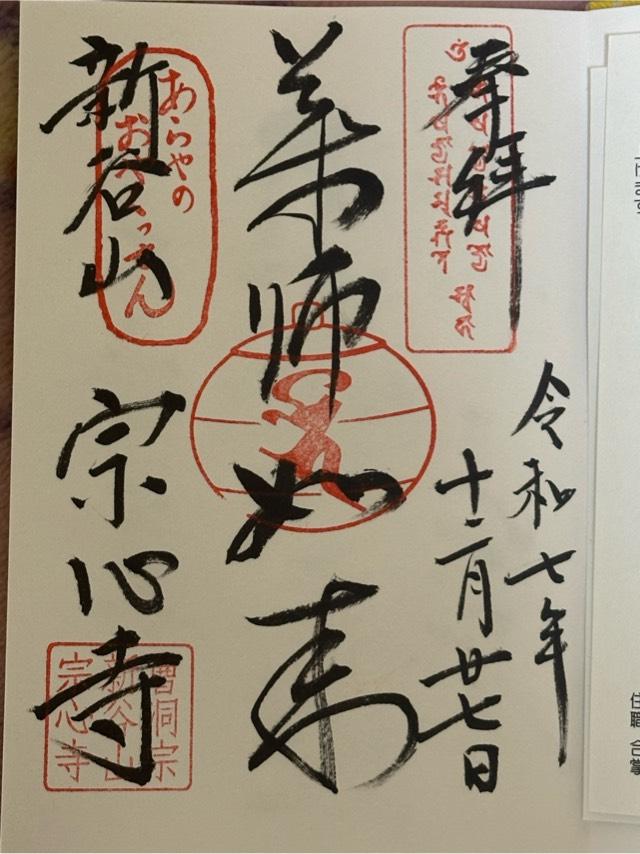 ます
住職 合掌
奉拝
令和七年
十二月廿七日
薬師如来
新谷山 宗心寺
あらやの
おやくっさん
曹洞宗
新谷山
宗心寺